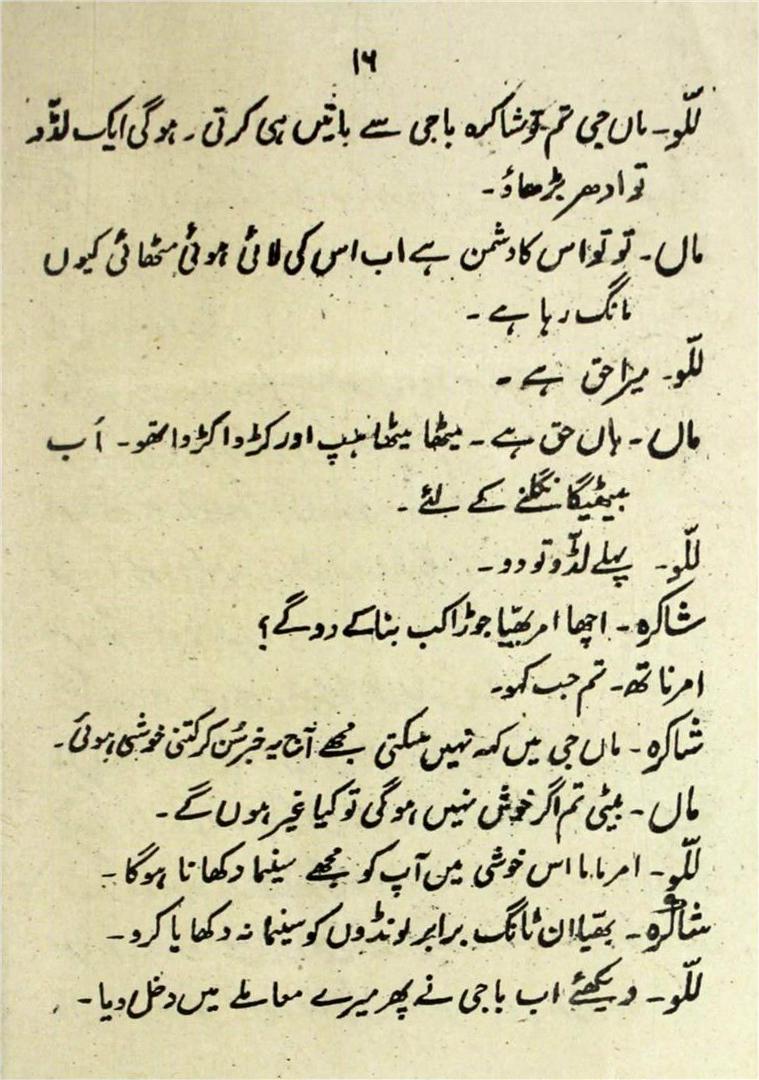 ۱۶
للّو۔ ماں جی تم تو شاکرہ باجی سے باتیں ہی کرتی۔ ہوگی ایک لڈّو
تو ادھر بڑھاؤ۔
ماں۔ تو تو اس کا دشمن ہے اب اس کی لائی ہوئی مٹھائی کیوں
مانگ رہا ہے۔
للّو۔ میرا حق ہے۔
ماں۔ ہاں حق ہے۔ میٹھا میٹھا ہپ اور کڑوا کڑوا تھو۔ اَب
بیٹھیگا نگلنے کے لئے۔
للّو۔ پہلے لڈّو تو دو۔
شاکرہ۔ اچھا امر بھیّا جوڑا کب بنا کے دو گے؟
امرناتھ۔ تم جب کہو۔
شاکرہ۔ ماں جی میں کہہ نہیں سکتی مجھے آج یہ خبر سُن کر کتنی خوشی ہوئی۔
ماں۔ بیٹی تم اگر خوش نہیں ہوگی تو کیا غیر ہوں گے۔
للّو۔ امر ماما اس خوشی میں آپ کو مجھے سینما دکھانا ہوگا۔
شاکرہ۔ بھیّا ان ٹانگ برابر لونڈوں کو سینما نہ دکھایا کرو۔
للّو۔ دیکھئے اب باجی نے پھر میرے معاملے میں دخل دیا۔